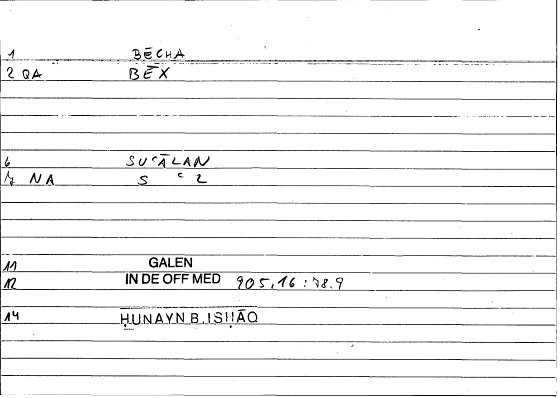 1 BĒCHA
2 QA BĒX
6 SUʿĀLAN
7 NA S ʿ L
11 GALEN
12 IN DE OFF MED 905,16 : 78.9
14 ḤUNAYN B. ISḤĀQ